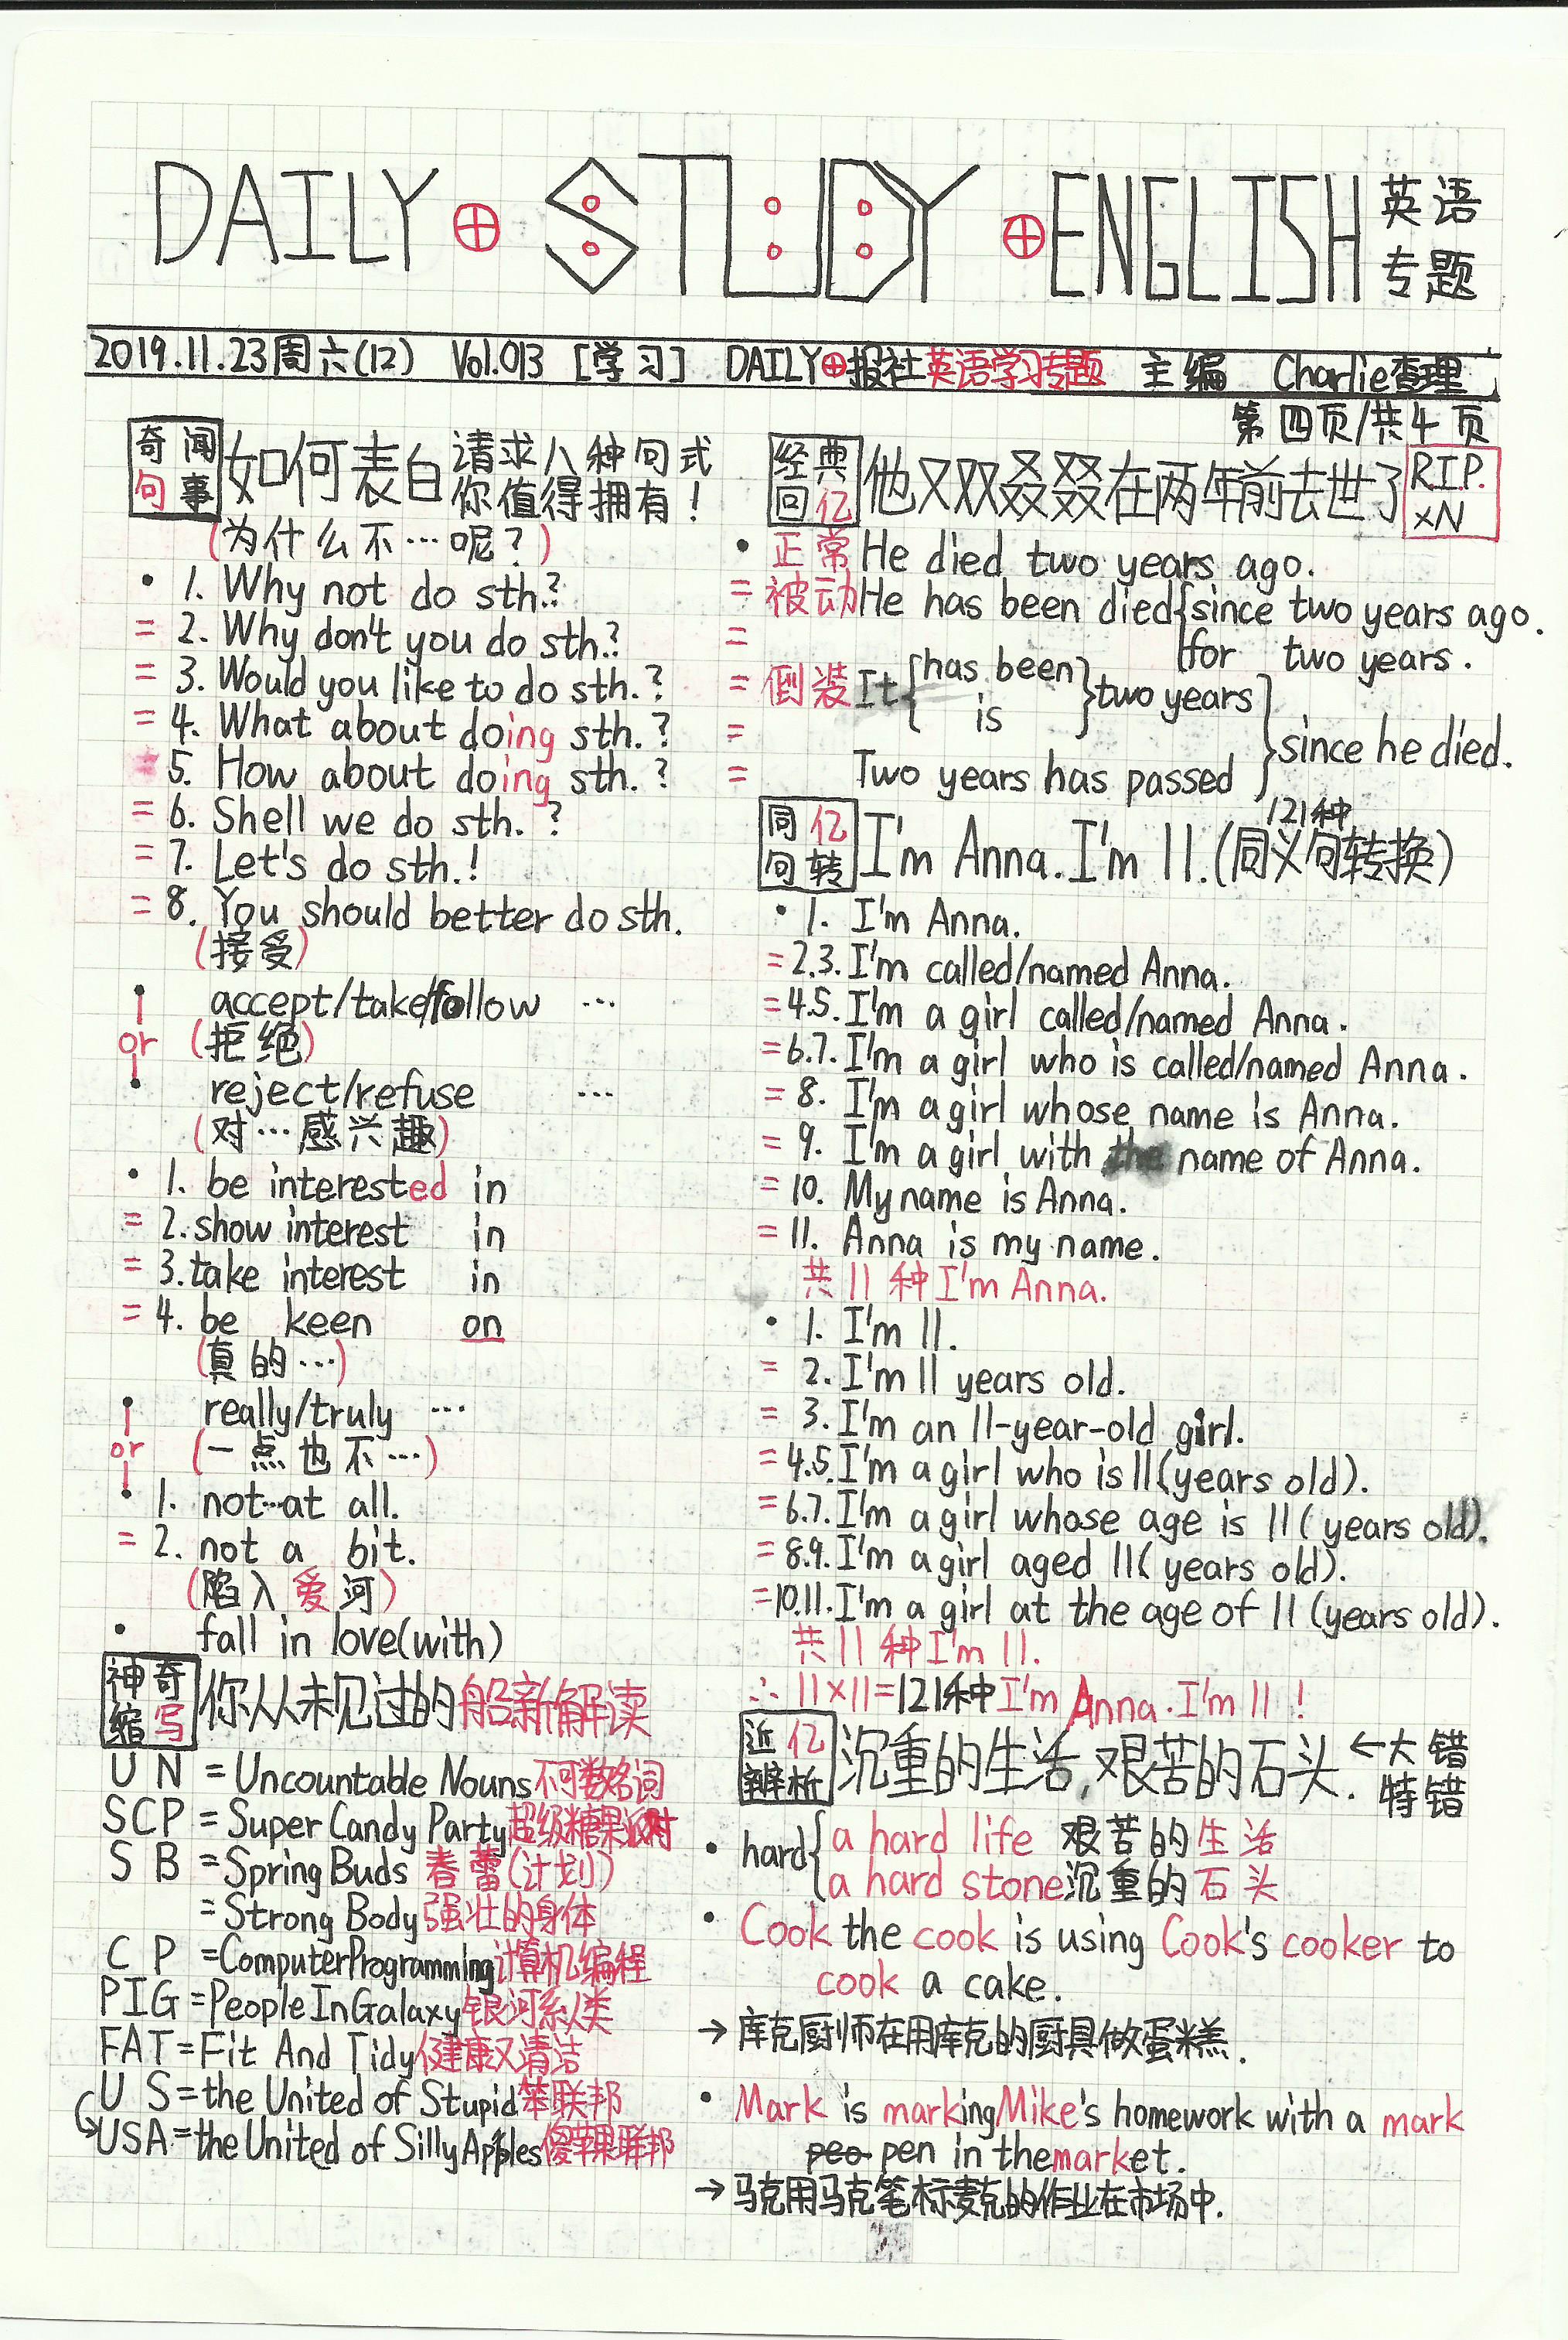 DAILY ⊕ STUDY ⊕ ENGLISH 英语专题
2019.11.23周六(12) Vol.013 [学习] DAILY⊕报社英语学习专题 主编 Charlie查理
第四页/共4页
奇闻句事 如何表白 请求八种句式
你值得拥有!
(为什么不…呢?)
• 1. Why not do sth.?
= 2. Why don't you do sth.?
= 3. Would you like to do sth.?
= 4. What about doing sth.?
5. How about doing sth.?
= 6. Shell we do sth.?
= 7. Let's do sth.!
= 8. You should better do sth.
(接受)
• accept/take/follow …
or (拒绝)
• reject/refuse …
(对…感兴趣)
• 1. be interested in
= 2. show interest in
= 3. take interest in
= 4. be keen on
(真的…)
• really/truly …
or (一点也不…)
• 1. not…at all.
= 2. not a bit.
(陷入爱河)
• fall in love(with)
神奇缩写 你从未见过的船新解读
U N = Uncountable Nouns不可数名词
SCP = Super Candy Party超级糖果派对
S B = Spring Buds 春蕾(计划)
= Strong Body强壮的身体
C P = Computer Programming计算机编程
PIG = People In Galaxy银河系人类
FAT = Fit And Tidy健康又清洁
U S = the United of Stupid笨联邦
USA = the United of Silly Apples傻苹果联邦
经典回亿 他又双叒叕在两年前去世了 R.I.P. ×N
• 正常 He died two years ago.
= 被动 He has been died { since two years ago.
= for two years.
= 倒装 It { has been
= is } two years
= Two years has passed } since he died.
同亿句转 I'm Anna. I'm 11. (同义句转换) 121种
• 1. I'm Anna.
= 2.3. I'm called/named Anna.
= 4.5. I'm a girl called/named Anna.
= 6.7. I'm a girl who is called/named Anna.
= 8. I'm a girl whose name is Anna.
= 9. I'm a girl with the name of Anna.
= 10. My name is Anna.
= 11. Anna is my name.
共11种I'm Anna.
• 1. I'm 11.
= 2. I'm 11 years old.
= 3. I'm an 11-year-old girl.
= 4.5. I'm a girl who is 11(years old).
= 6.7. I'm a girl whose age is 11(years old).
= 8.9. I'm a girl aged 11(years old).
= 10.11. I'm a girl at the age of 11(years old).
共11种I'm 11.
∴ 11×11=121种I'm Anna. I'm 11!
近亿辨析 沉重的生活,艰苦的石头. ←大错特错
• hard { a hard life 艰苦的生活
a hard stone沉重的石头
• Cook the cook is using Cook's cooker to
cook a cake.
→ 库克厨师在用库克的厨具做蛋糕.
• Mark is marking Mike's homework with a mark
peo pen in the market.
→ 马克用马克笔标麦克的作业在市场中.